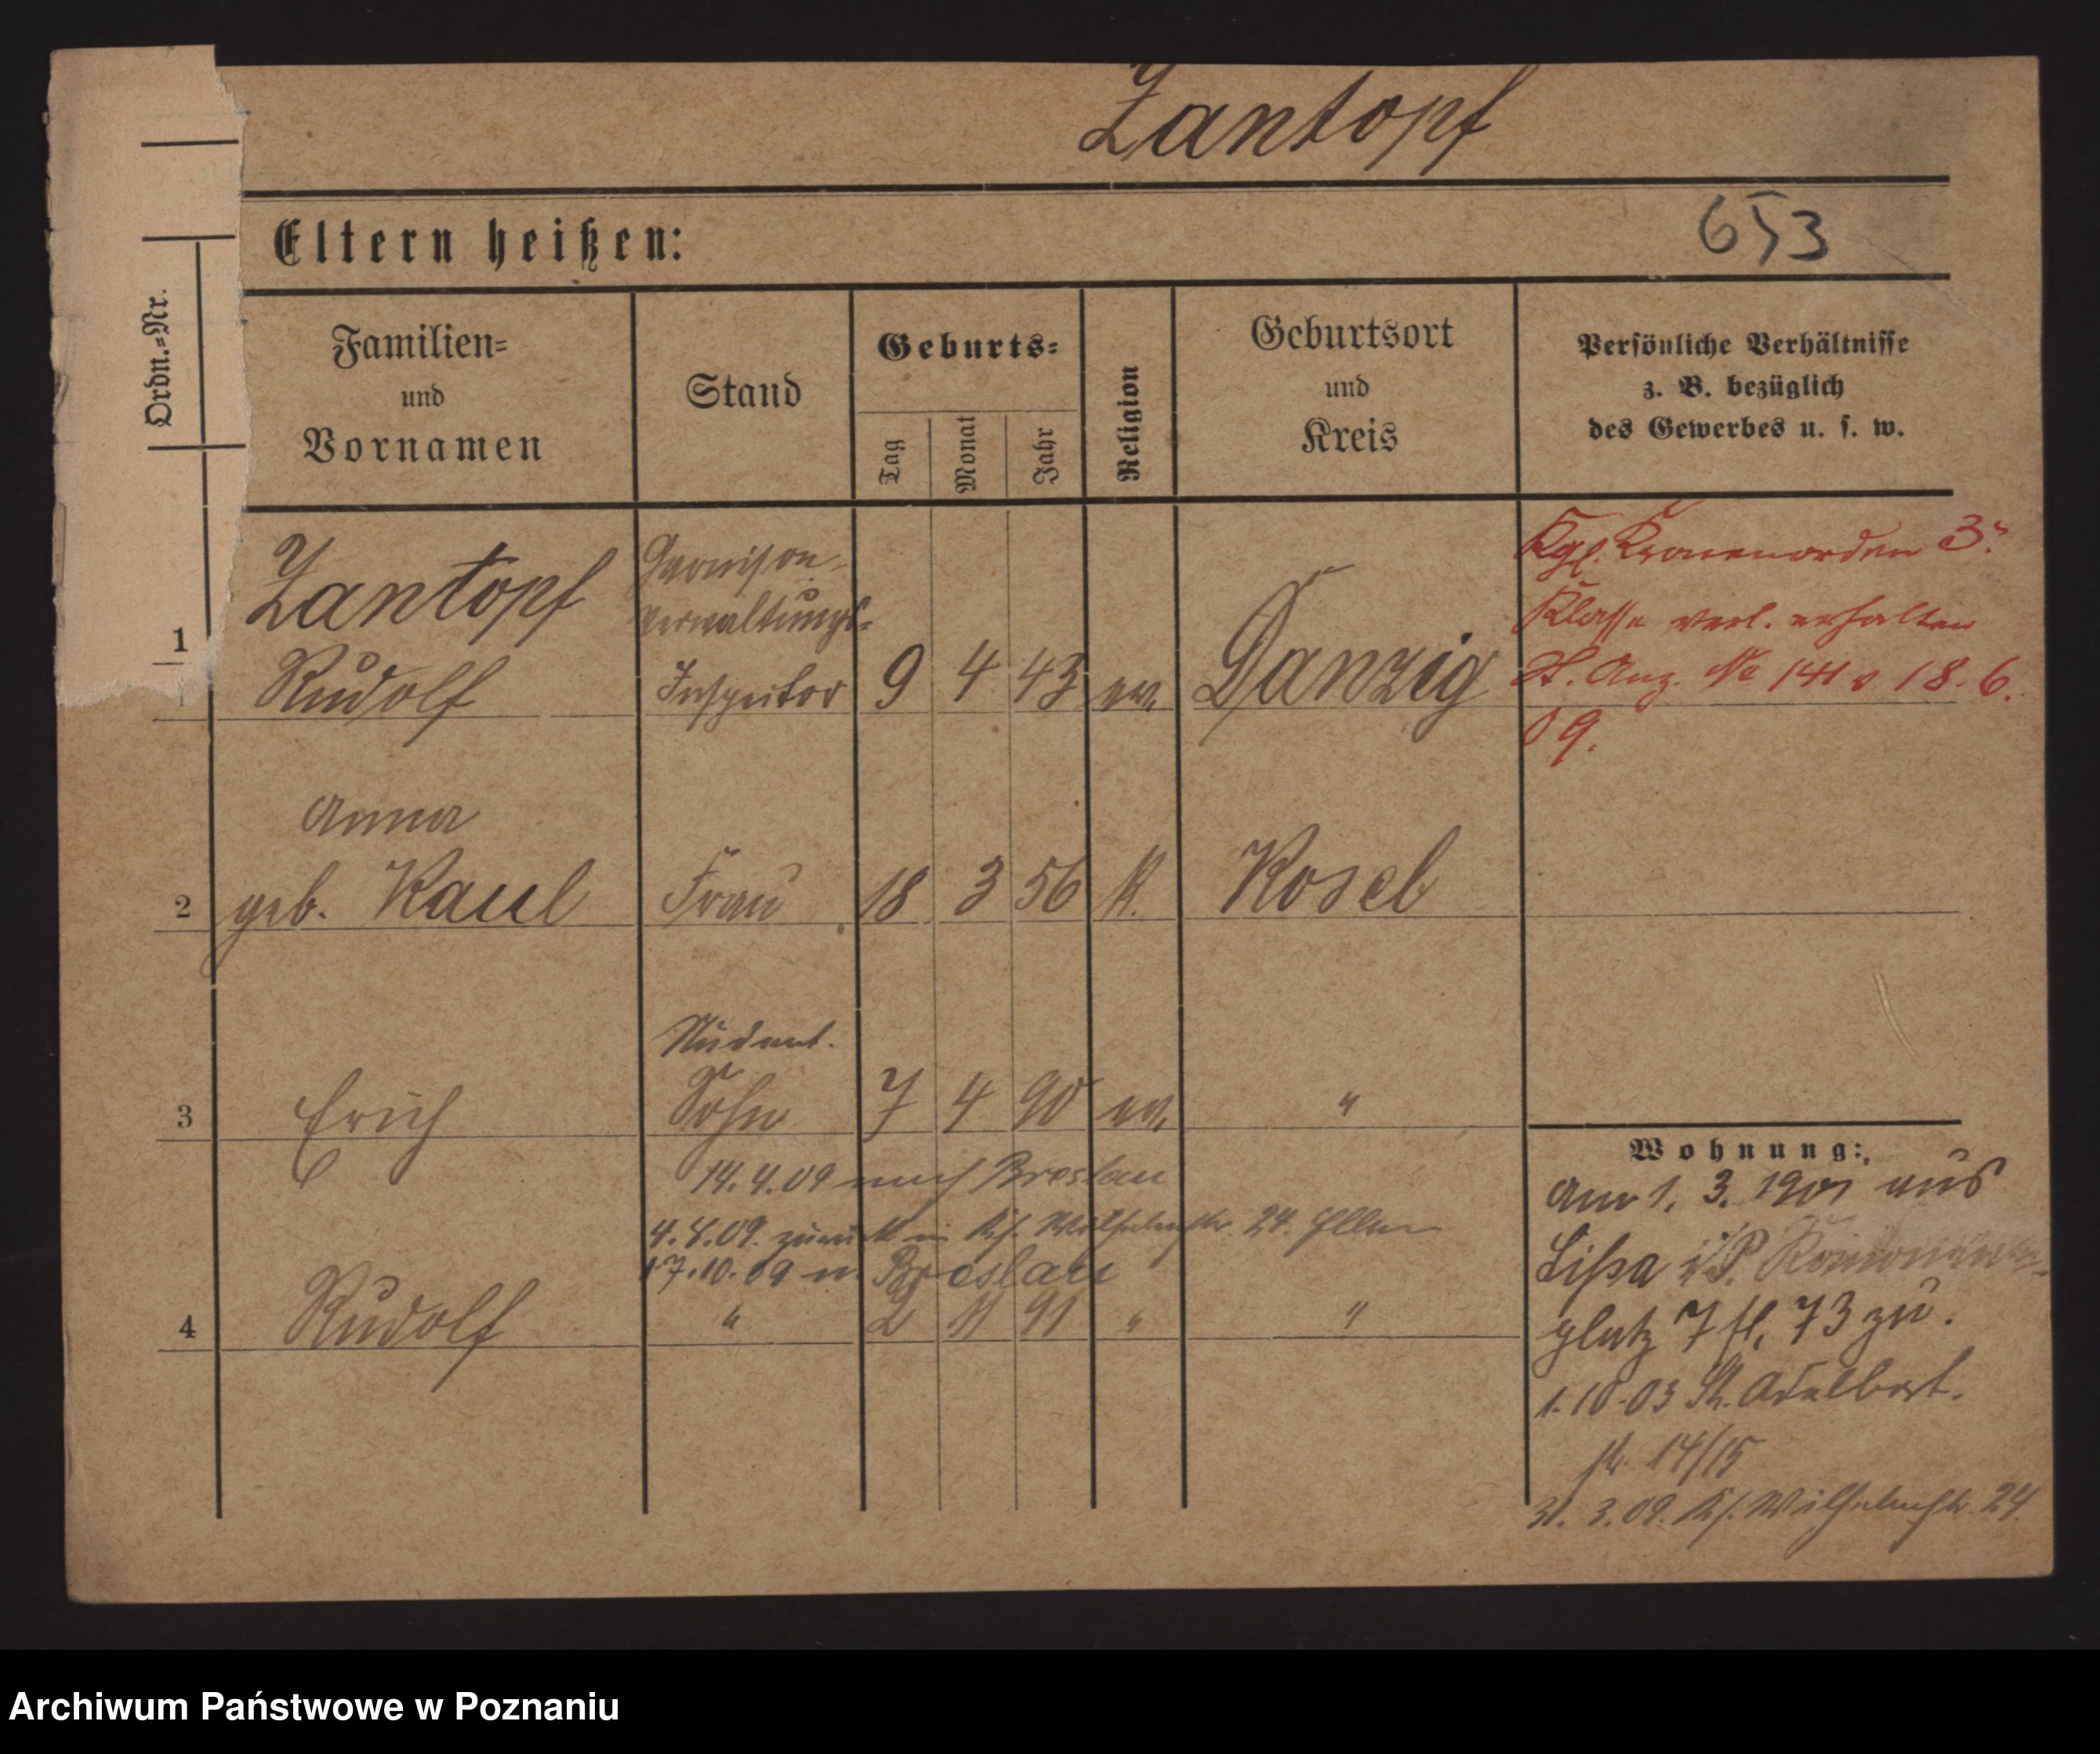 Zantopf
Eltern heißen:
653
Ordn.-Nr.
Familien-
und
Vornamen
Stand
Geburts-
Tag
Monat
Jahr
Religion
Geburtsort
und
Kreis
Persönliche Verhältnisse
z. B. bezüglich
des Gewerbes u. s. w.
1
Zantopf
Rudolf
Garnison-
verwaltungs-
Inspektor
9 4 43 ev.
Danzig
Kgl. Kronenorden 3.
Klasse verl. erhalten
St. Anz. No 141 v 18. 6.
09.
2
Anna
geb. Kaul
Frau
18 3 56 K.
Kosel
3
Erich
Student.
Sohn
7 4 90 ev.
"
14.4.09 nach Breslau
4.8.09. zurück in Ks. Wilhelmstr. 24. Eltern
17.10.09 n. Breslau
4
Rudolf
" 2 11 91 "
"
Wohnung:
Am 1. 3. 1901 aus
Lissa i/P.
platz 7 fl, 73 zu.
1.10.03 St. Adalbert.
str. 14/15
31. 3. 09. Ks. Wilhelmstr. 24.
Archiwum Państwowe w Poznaniu